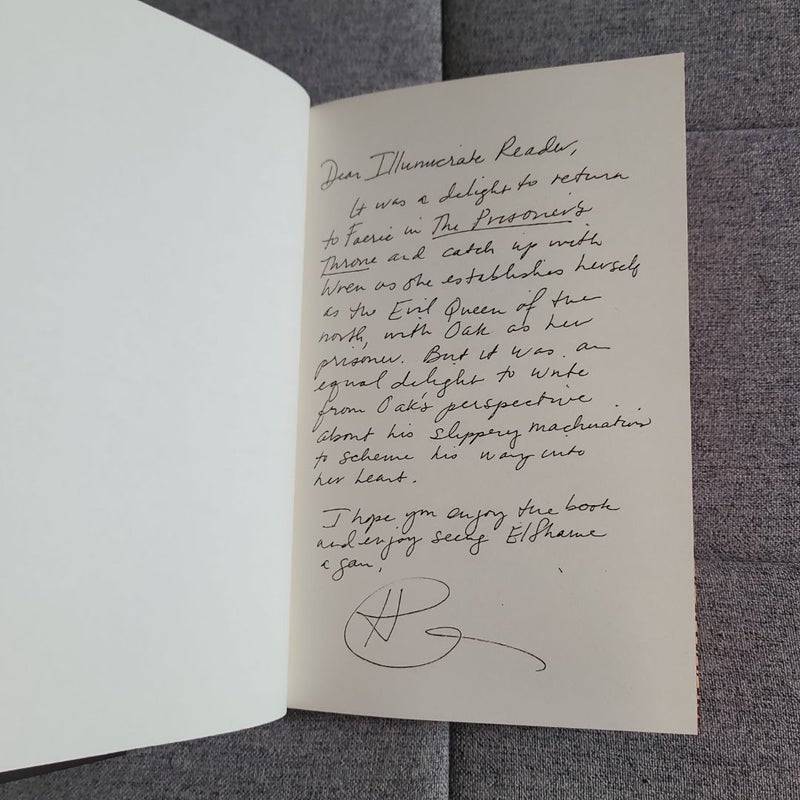 Dear Illumicrate Reader,
It was a delight to return
to Faerie in The Prisoner's
Throne and catch up with
Wren as she establishes herself
as the Evil Queen of the
north, with Oak as her
prisoner. But it was an
equal delight to write
from Oak's perspective
about his slippery machinations
to scheme his way into
her heart.
I hope you enjoy the book
and enjoy seeing Elfhame
again,